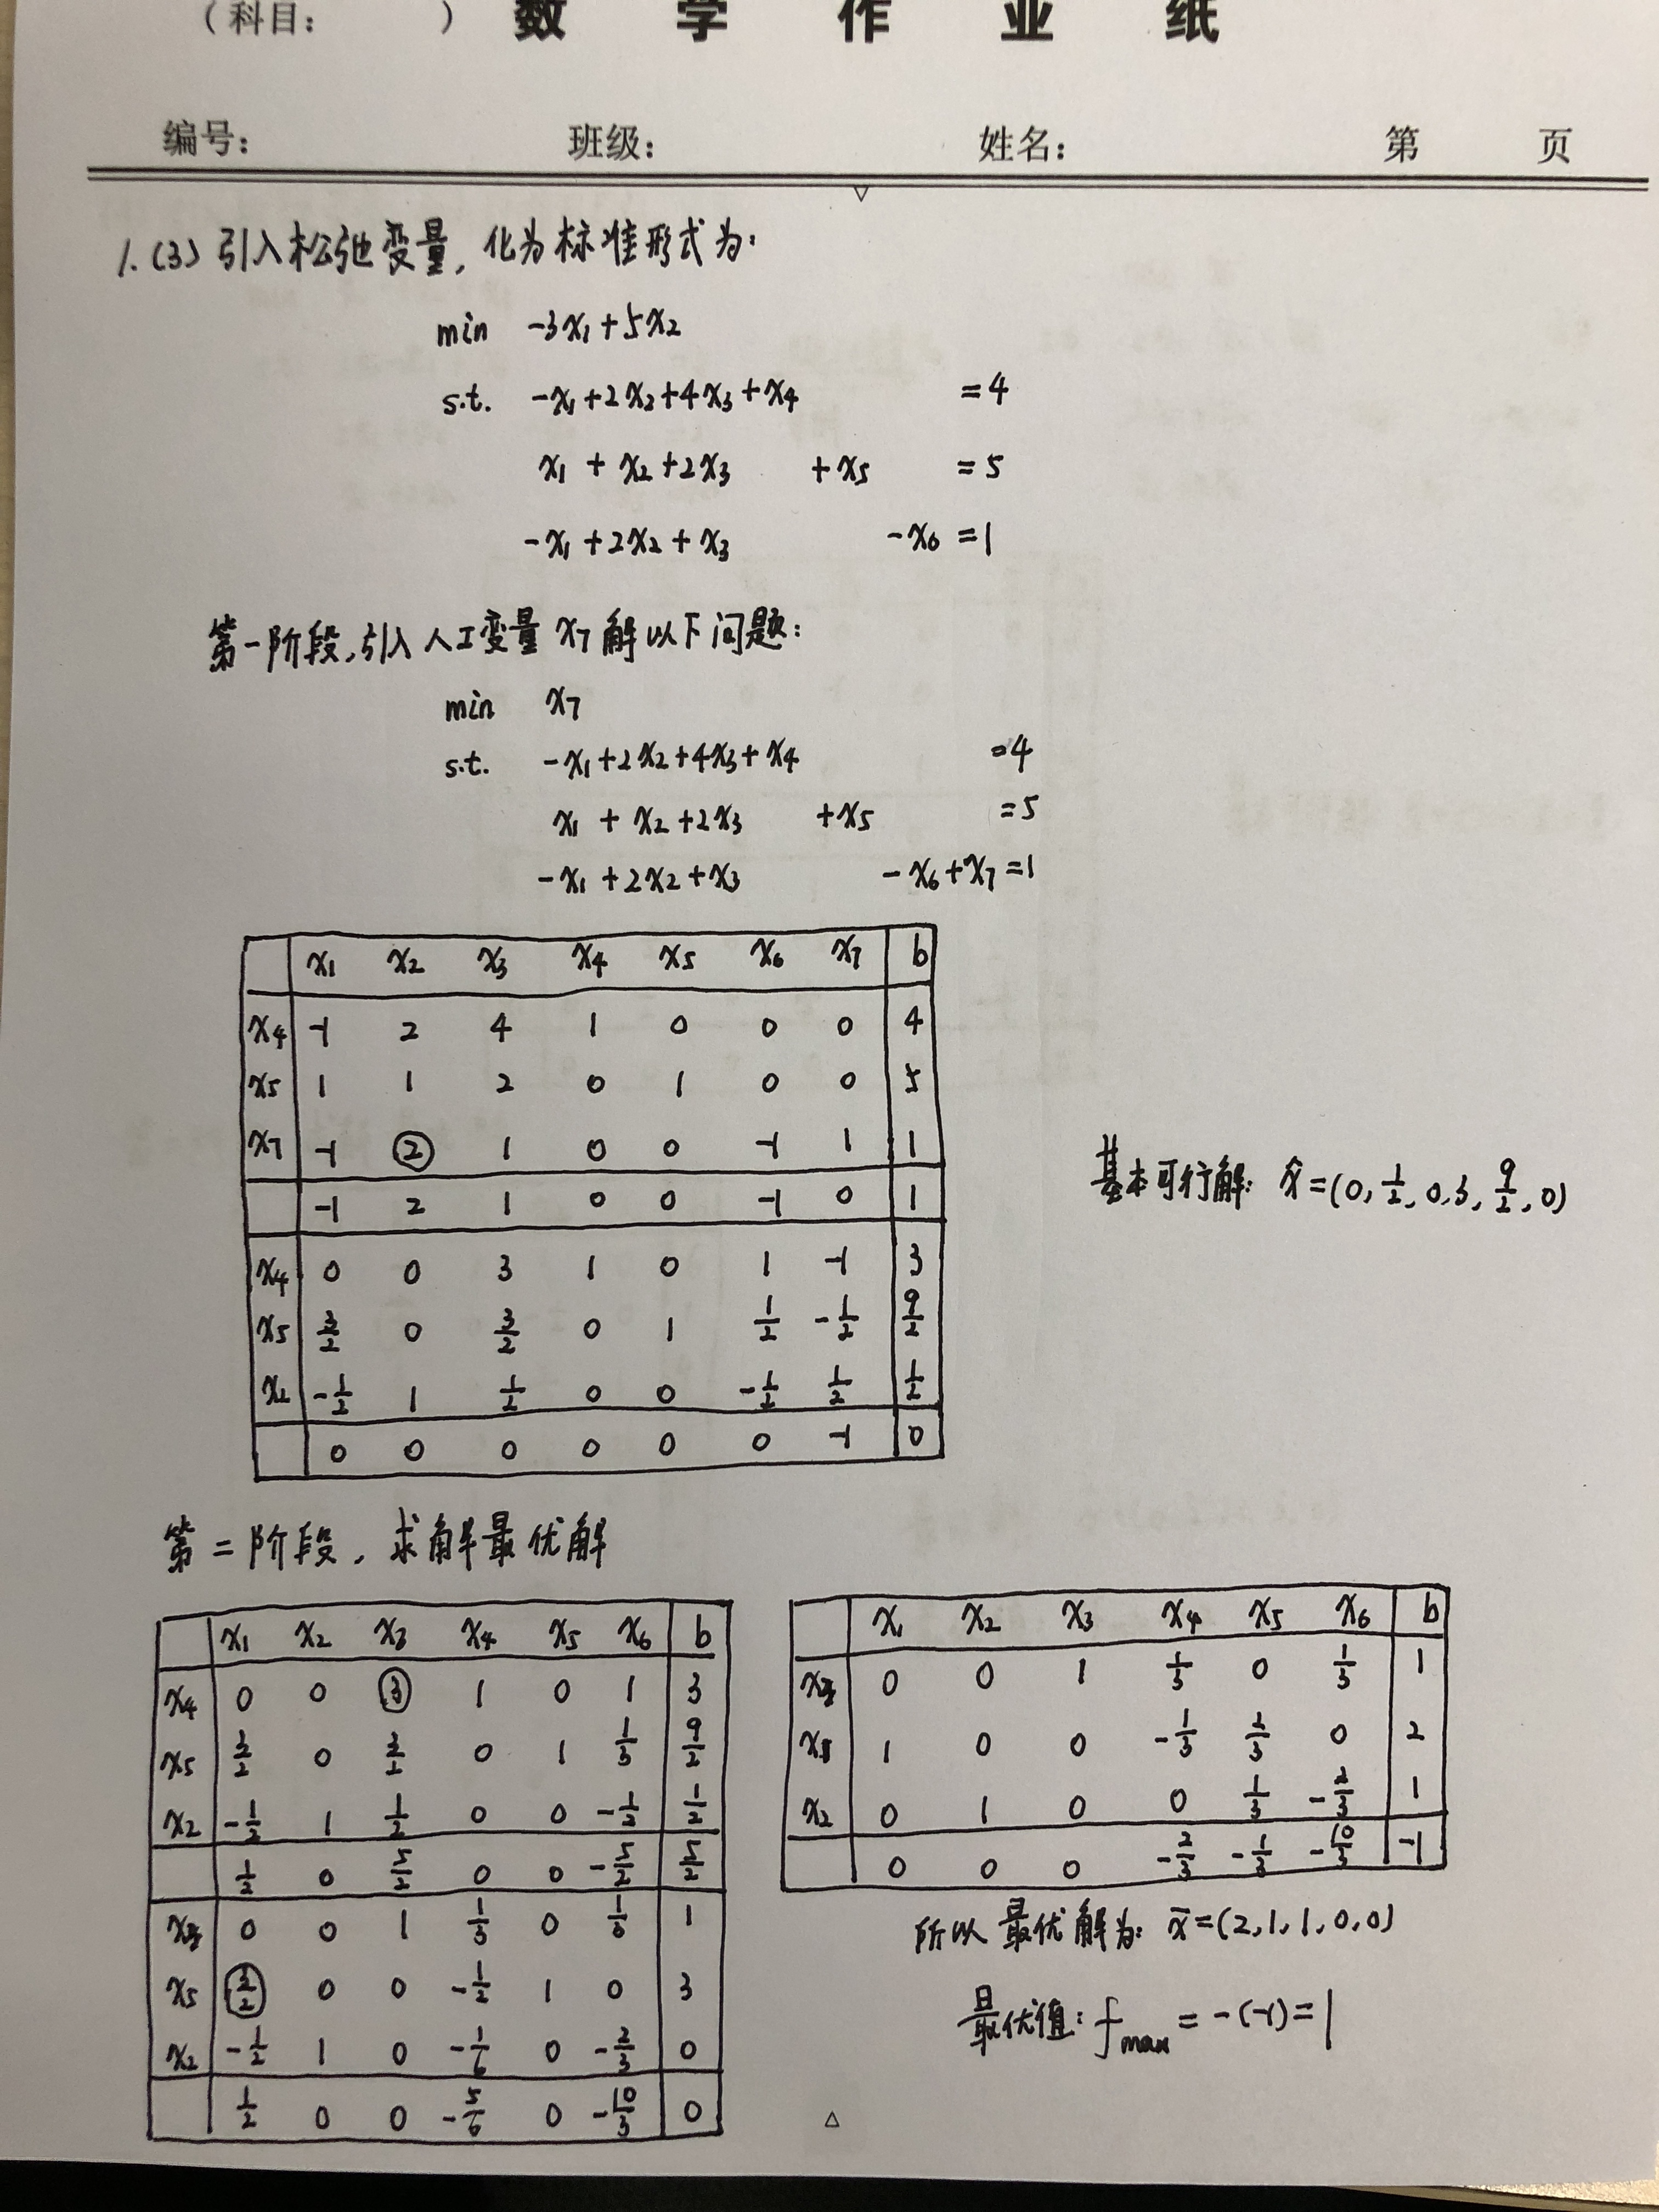 (科目: ) 数 学 作 业 纸
编号: 班级: 姓名: 第 页
1.(3) 引入松弛变量, 化为标准形式为:
min -3x₁+5x₂
s.t. -x₁+2x₂+4x₃+x₄ =4
x₁+x₂+2x₃ +x₅ =5
-x₁+2x₂+x₃ -x₆ =1
第一阶段,引入人工变量 x₇ 解以下问题:
min x₇
s.t. -x₁+2x₂+4x₃+x₄ =4
x₁+x₂+2x₃ +x₅ =5
-x₁+2x₂+x₃ -x₆+x₇=1
x₁ x₂ x₃ x₄ x₅ x₆ x₇ b
x₄ -1 2 4 1 0 0 0 4
x₅ 1 1 2 0 1 0 0 5
x₇ -1 ② 1 0 0 -1 1 1
-1 2 1 0 0 -1 0 1
x₄ 0 0 3 1 0 1 -1 3
x₅ 3/2 0 3/2 0 1 1/2 -1/2 9/2
x₂ -1/2 1 1/2 0 0 -1/2 1/2 1/2
0 0 0 0 0 0 -1 0
基本可行解: x̂=(0,1/2,0,3,9/2,0)
第二阶段, 求解最优解
x₁ x₂ x₃ x₄ x₅ x₆ b
x₄ 0 0 ③ 1 0 1 3
x₅ 3/2 0 3/2 0 1 1/3 9/2
x₂ -1/2 1 1/2 0 0 -1/2 1/2
1/2 0 5/2 0 0 -5/2 5/2
x₃ 0 0 1 1/3 0 1/3 1
x₅ 3/2 0 0 -1/2 1 0 3
x₂ -1/2 1 0 -1/6 0 -2/3 0
1/2 0 0 -5/6 0 -10/3 0
x₁ x₂ x₃ x₄ x₅ x₆ b
x₃ 0 0 1 1/3 0 1/3 1
1 0 0 -1/3 2/3 0 2
x₂ 0 1 0 0 1/3 -2/3 1
0 0 0 -2/3 -1/3 -10/3 -1
所以最优解为: x̄=(2,1,1,0,0)
最优值: fmax = -(-1)=1